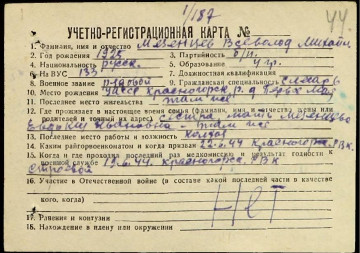 1/187
44
УЧЕТНО-РЕГИСТРАЦИОННАЯ КАРТА №
1. Фамилия, имя и отчество Мезенцев Всеволод Михайл
2. Год рождения 1925 3. Партийность б/п.
4. Национальность русск. 5. Образование 4 гр.
6. № ВУС 133 7. Должностная квалификация
8. Военное звание рядовой 9. Гражданская специальность слесарь
10. Место рождения УАССР Красногорск. р.
11. Последнее место жительства там же
12. Где проживает в настоящее время семья (фамилия, имя и отчество жены или
родителей и точный их адрес) мать Мезенцева
Ивановна там же
13. Последнее место работы и должность колхоз
14. Каким райгорвоенкоматом и когда призван 22.6.44 Красногорск. РВК.
15. Когда и где проходил последний раз медкомиссию и результат годности к
военной службе 19.6.44 Красногорск. РВК
строевой
16. Участие в Отечественной войне (в составе какой последней части в качестве
кого, когда) Нет
17. Ранения и контузии
18. Нахождение в плену или окружении